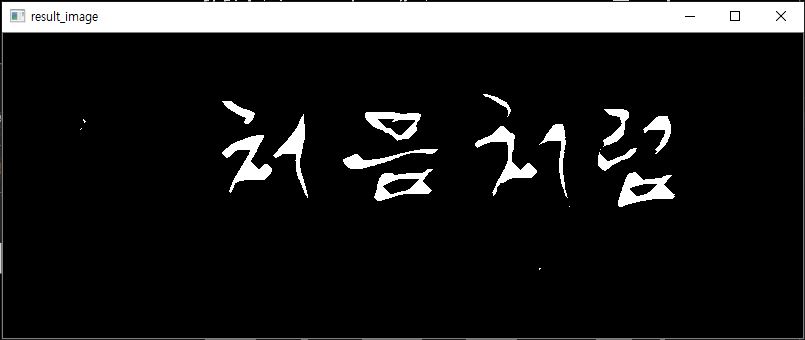 result_image
처음처럼